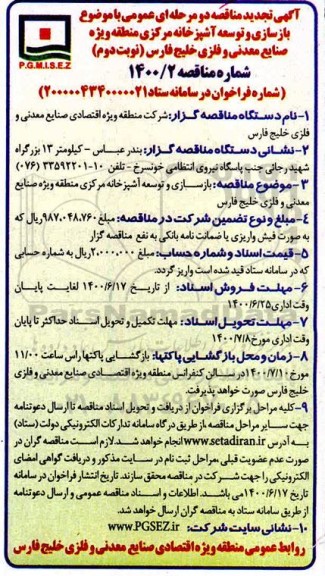 آگهی تجدید مناقصه دو مرحله ای عمومی با موضوع
بازسازی و توسعه آشپزخانه مرکزی منطقه ویژه
صنایع معدنی و فلزی خلیج فارس (نوبت دوم)
P.G.M.I.S.E.Z
شماره مناقصه ۱۴۰۰/۲
(شماره فراخوان در سامانه ستاد ۲۰۰۰۰۰۴۳۴۰۰۰۰۰۲۱)
۱-نام دستگاه مناقصه گزار: شرکت منطقه ویژه اقتصادی صنایع معدنی و
فلزی خلیج فارس
۲- نشانی دستگاه مناقصه گزار: بندرعباس - کیلومتر ۱۳ بزرگراه
شهید رجائی جنب پاسگاه نیروی انتظامی خونسرخ - تلفن ۱۰-۳۳۵۹۲۲۰۱ (۰۷۶)
۳-موضوع مناقصه: بازسازی و توسعه آشپزخانه مرکزی منطقه ویژه صنایع
معدنی و فلزی خلیج فارس
۴- مبلغ و نوع تضمین شرکت در مناقصه: مبلغ ۹۸۷،۰۴۸،۷۶۰ریال که
به صورت فیش واریزی یا ضمانت نامه بانکی به نفع مناقصه گزار
۵- قیمت اسناد و شماره حساب: مبلغ ۲،۰۰۰،۰۰۰ریال به شماره حسابی
که در سامانه ستاد قید شده است واریز گردد.
۶- مهلت فروش اسناد: از تاریخ ۱۴۰۰/۶/۱۷ لغایت پایان
وقت اداری ۱۴۰۰/۶/۲۵
۷- مهلت تحویل اسناد: مهلت تکمیل و تحویل اسناد حداکثر تا پایان
وقت اداری مورخ ۱۴۰۰/۷/۸
۸- زمان و محل بازگشایی پاکتها: بازگشایی پاکتها راس ساعت ۱۱/۰۰
مورخ ۱۴۰۰/۷/۱۰ در سالن کنفرانس منطقه ویژه اقتصادی صنایع معدنی و فلزی
خلیج فارس صورت خواهد پذیرفت.
۹-کلیه مراحل برگزاری فراخوان از دریافت و تحویل اسناد مناقصه تا ارسال دعوتنامه
جهت سایر مراحل مناقصه از طریق درگاه سامانه تدارکات الکترونیکی دولت (ستاد)
به آدرس www.setadiran.ir انجام خواهد شد. لازم است مناقصه گران در
صورت عدم عضویت قبلی، مراحل ثبت نام در سایت مذکور و دریافت گواهی امضای
الکترونیکی را جهت شرکت در مناقصه محقق سازند. تاریخ انتشار فراخوان در سامانه
تاریخ ۱۴۰۰/۶/۱۷می باشد. اطلاعات و اسناد مناقصه عمومی و ارسال دعوتنامه
از طریق سامانه ستاد به مناقصه گران ارسال خواهد شد.
۱۰-نشانی سایت شرکت: www.PGSEZ.ir
روابط عمومی منطقه ویژه اقتصادی صنایع معدنی و فلزی خلیج فارس